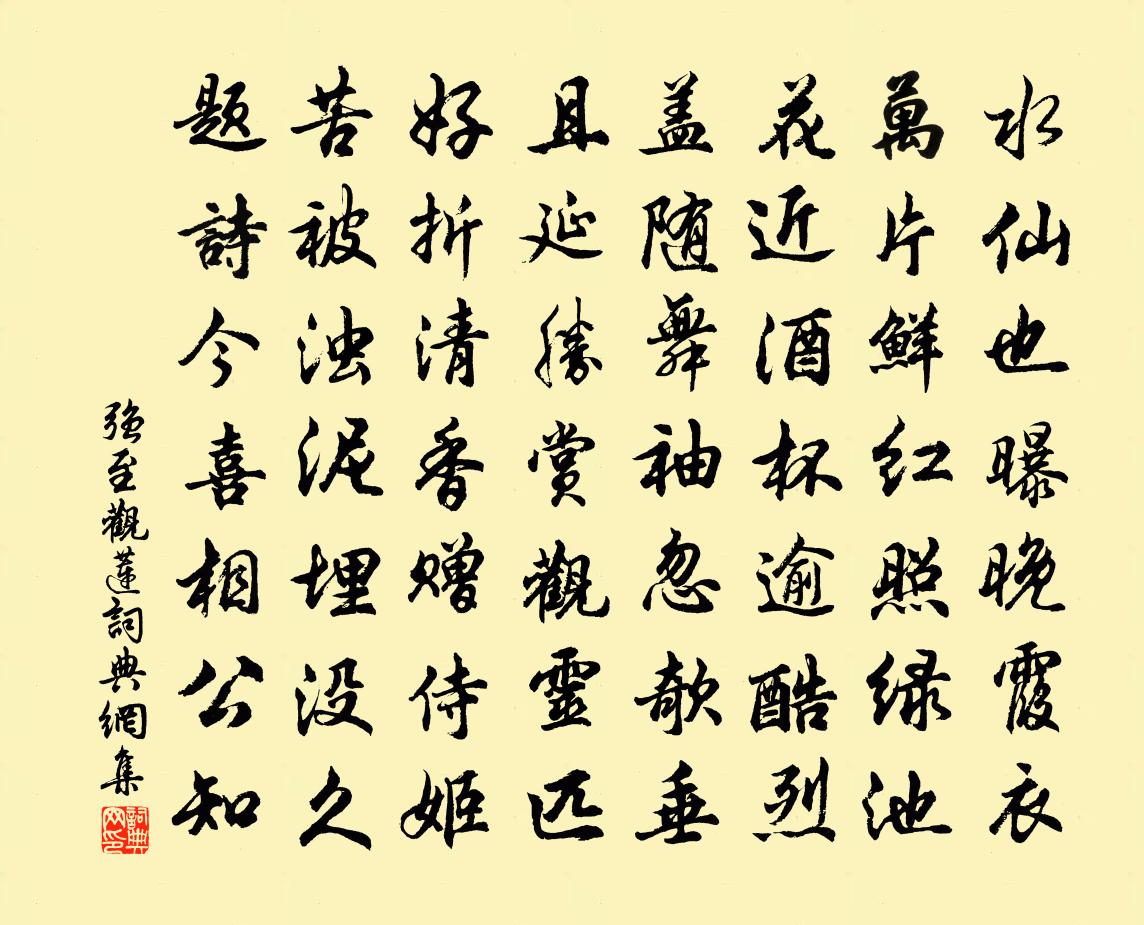 水仙也曝晚霞衣
萬片鮮紅照緑池
花近酒杯逾酷烈
盖随舞袖忽欹垂
且延勝賞觀靈匹
好折清香赠侍姬
苦被浊泥埋没久
题詩今喜相公知
强至觀蓮詞典網集
詞典网印